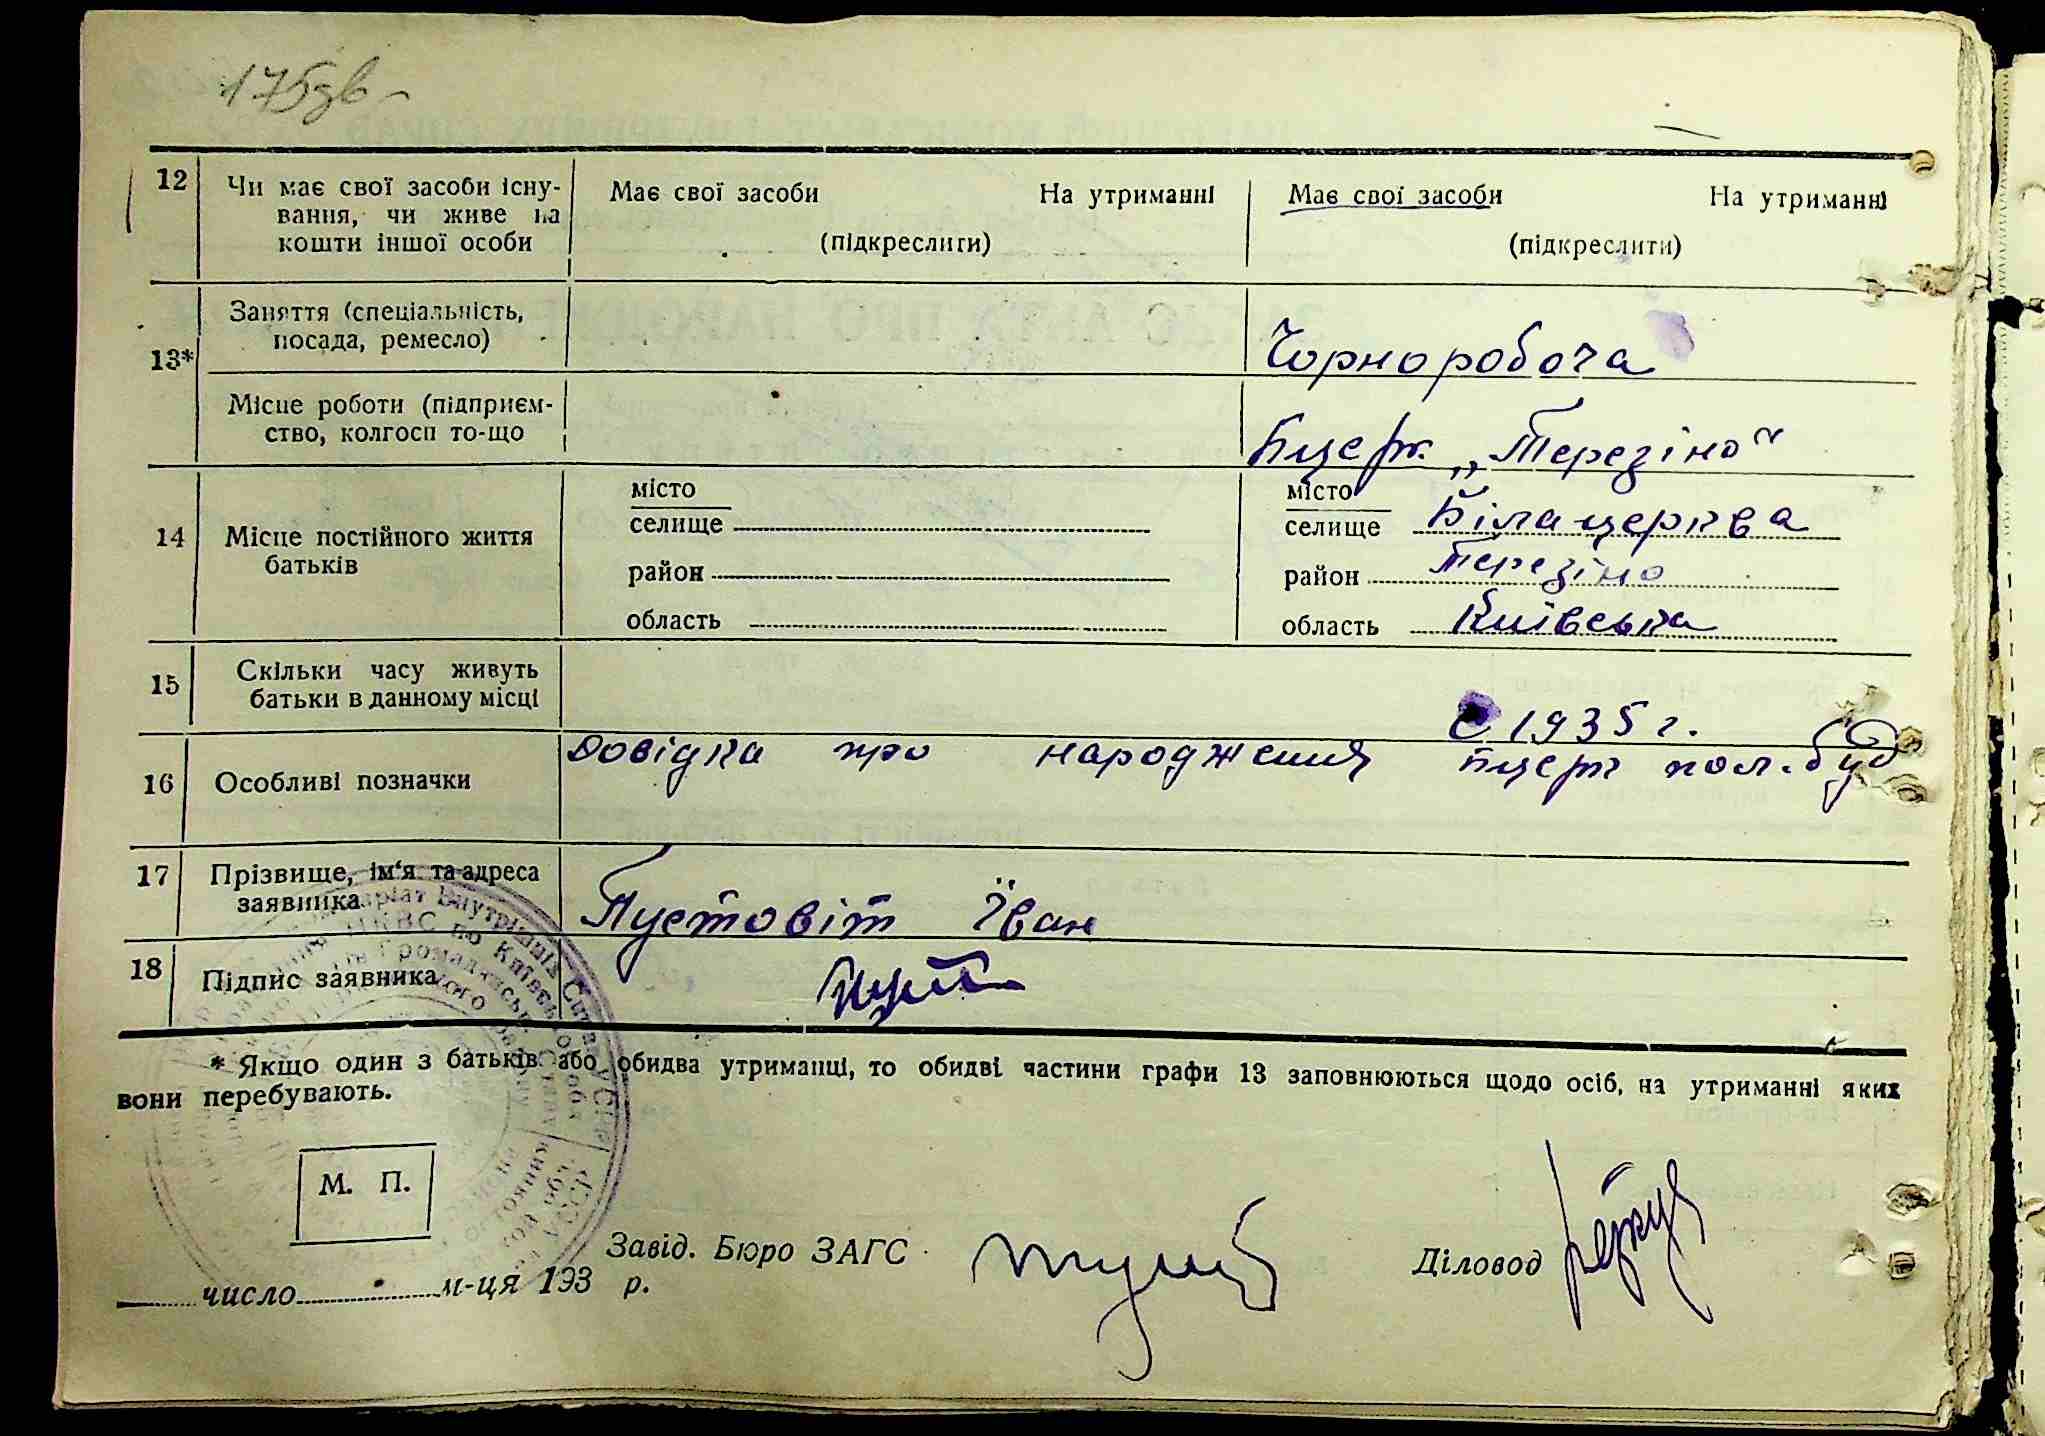 175зв
12 Чи має свої засоби існу-
вання, чи живе на
кошти іншої особи
Має свої засоби На утриманні
(підкреслити)
Має свої засоби На утриманні
(підкреслити)
13*
Заняття (спеціальність,
посада, ремесло)
Чорноробоча
Місце роботи (підприєм-
ство, колгосп то-що
Бцерк „Терезіно"
14 Місце постійного життя
батьків
місто
селище
район
область
місто
селище Білацерква
район Терезіно
область Київська
15 Скільки часу живуть
батьки в данному місці
С 1935 г.
16 Особливі позначки
Довідка про народження Бцерк пол.буд
17 Прізвище, ім'я та адреса
заявника
Пустовіт Іван
18 Підпис заявника
* Якщо один з батьків або обидва утриманці, то обидві частини графи 13 заповнюються щодо осіб, на утриманні яких
вони перебувають.
М. П.
Завід. Бюро ЗАГС
Діловод
число м-ця 193 р.